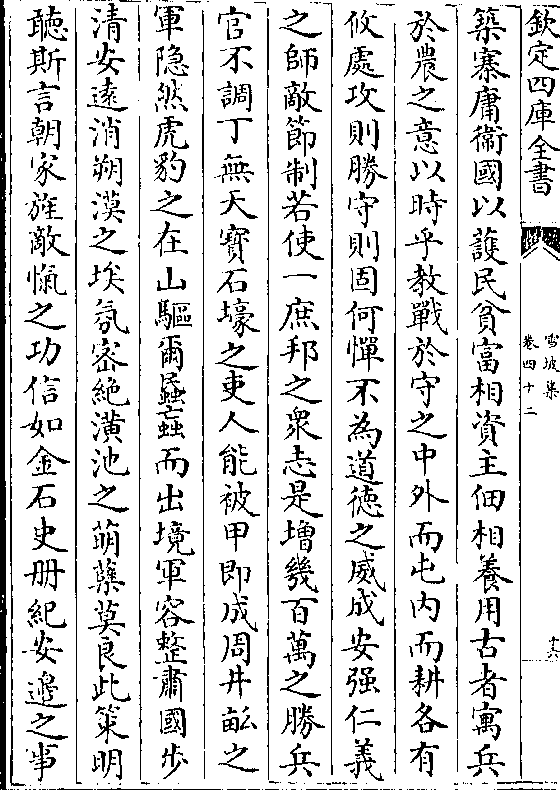 欽定四庫全書
雪坡集
卷四十二
十六
築寨庸衛國以護民貧富相資主佃相養用古者寓兵
於農之意以時乎教戰於守之中外而屯内而耕各有
攸處攻則勝守則固何憚不為道德之威成安强仁義
之師敵節制若使一庶邦之衆志是増幾百萬之勝兵
官不調丁無天寳石壕之吏人能被甲即成周井畝之
軍隠然虎豹之在山驅爾蝨蝱而出境軍容整肅國步
清安遠消朔漠之埃氛宻絶潢池之萌蘖莫良此策明
聴斯言朝家旌敵愾之功信如金石史册紀安邉之事